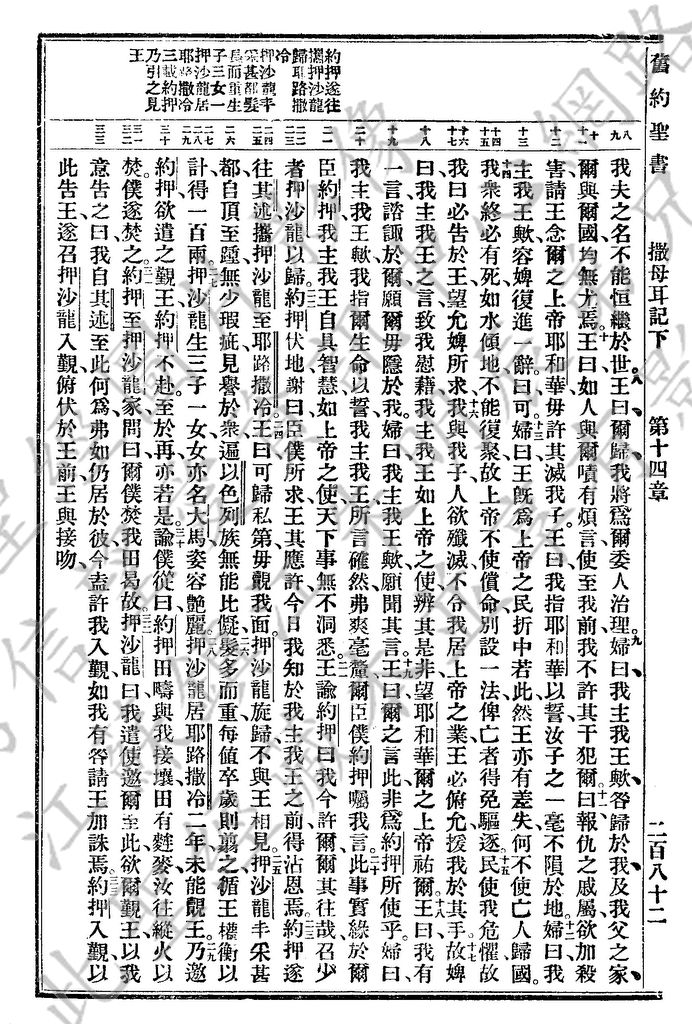 舊約聖書 撒母耳記下 第十四章 二百八十二
約押遂往
攜押沙龍
歸耶路撒
冷
押沙龍丰
采甚都髮
長而重生
子三女一
押沙龍居
耶路撒冷
三載約押
乃引之見
王
八
九
十
十一
十二
十三
十四
十五
十六
十七
十八
十九
二十
二一
二二
二三
二四
二五
二六
二七
二八
二九
三十
三一
三二
三三
我夫之名不能恒繼於世、八王曰爾歸我將爲爾委人治理、九婦曰我主我王歟咎歸於我及我父之家、
爾與爾國均無尤焉、十王曰如人與爾嘖有煩言使至我前我不許其干犯爾、十一曰報仇之戚屬欲加殺
害請王念爾之上帝耶和華毋許其滅我子王曰我指耶和華以誓汝子之一毫不隕於地、十二婦曰我
主我王歟容婢復進一辭曰可、十三婦曰王旣爲上帝之民折中若此然王亦有差失何不使亡人歸國、
十四我衆終必有死如水傾地不能復聚故上帝不使償命別設一法俾亡者得免驅逐、十五民使我危懼故
我曰必告於王望允婢所求、十六我與我子人欲殲滅不令我居上帝之業王必俯允援我於其手、十七故婢
曰我主我王之言致我慰藉我主我王如上帝之使辨其是非望耶和華爾之上帝祐爾、十八王曰我有
一言諮諏於爾願爾毋隱於我婦曰我主我王歟願聞其言、十九王曰爾之言此非爲約押所使乎婦曰、
我主我王歟我指爾生命以誓我主我王所言確然弗爽毫釐爾臣僕約押囑我言、二十此事實緣於爾
臣約押我主我王自具智慧如上帝之使天下事無不洞悉、二一王諭約押曰我今許爾爾其往哉召少
者押沙龍以歸、二二約押伏地謝曰臣僕所求王其應許今日我知於我主我王之前得沾恩焉、二三約押遂
往其述攜押沙龍至耶路撒冷、二四王曰可歸私第毋覿我面押沙龍旋歸不與王相見、二五押沙龍丰采甚
都自頂至踵無少瑕疵見譽於衆遍以色列族無能比儗、二六髮多而重每値卒歲則翦之循王權衡以
計得一百兩、二七押沙龍生三子一女女亦名大馬姿容艷麗、二八押沙龍居耶路撒冷二年未能覿王、二九乃邀
約押欲遣之覲王約押不赴至於再亦若是、三十諭僕從曰約押田疇與我接壤田有麰麥汝往縱火以
焚僕遂焚之、三一約押至押沙龍家問曰爾僕焚我田曷故、三二押沙龍曰我遣使邀爾至此欲爾覲王以我
意告之曰我自其述至此何爲弗如仍居於彼今盍許我入覲如我有咎請王加誅焉、三三約押入覲以
此告王遂召押沙龍入覲俯伏於王前王與接吻、